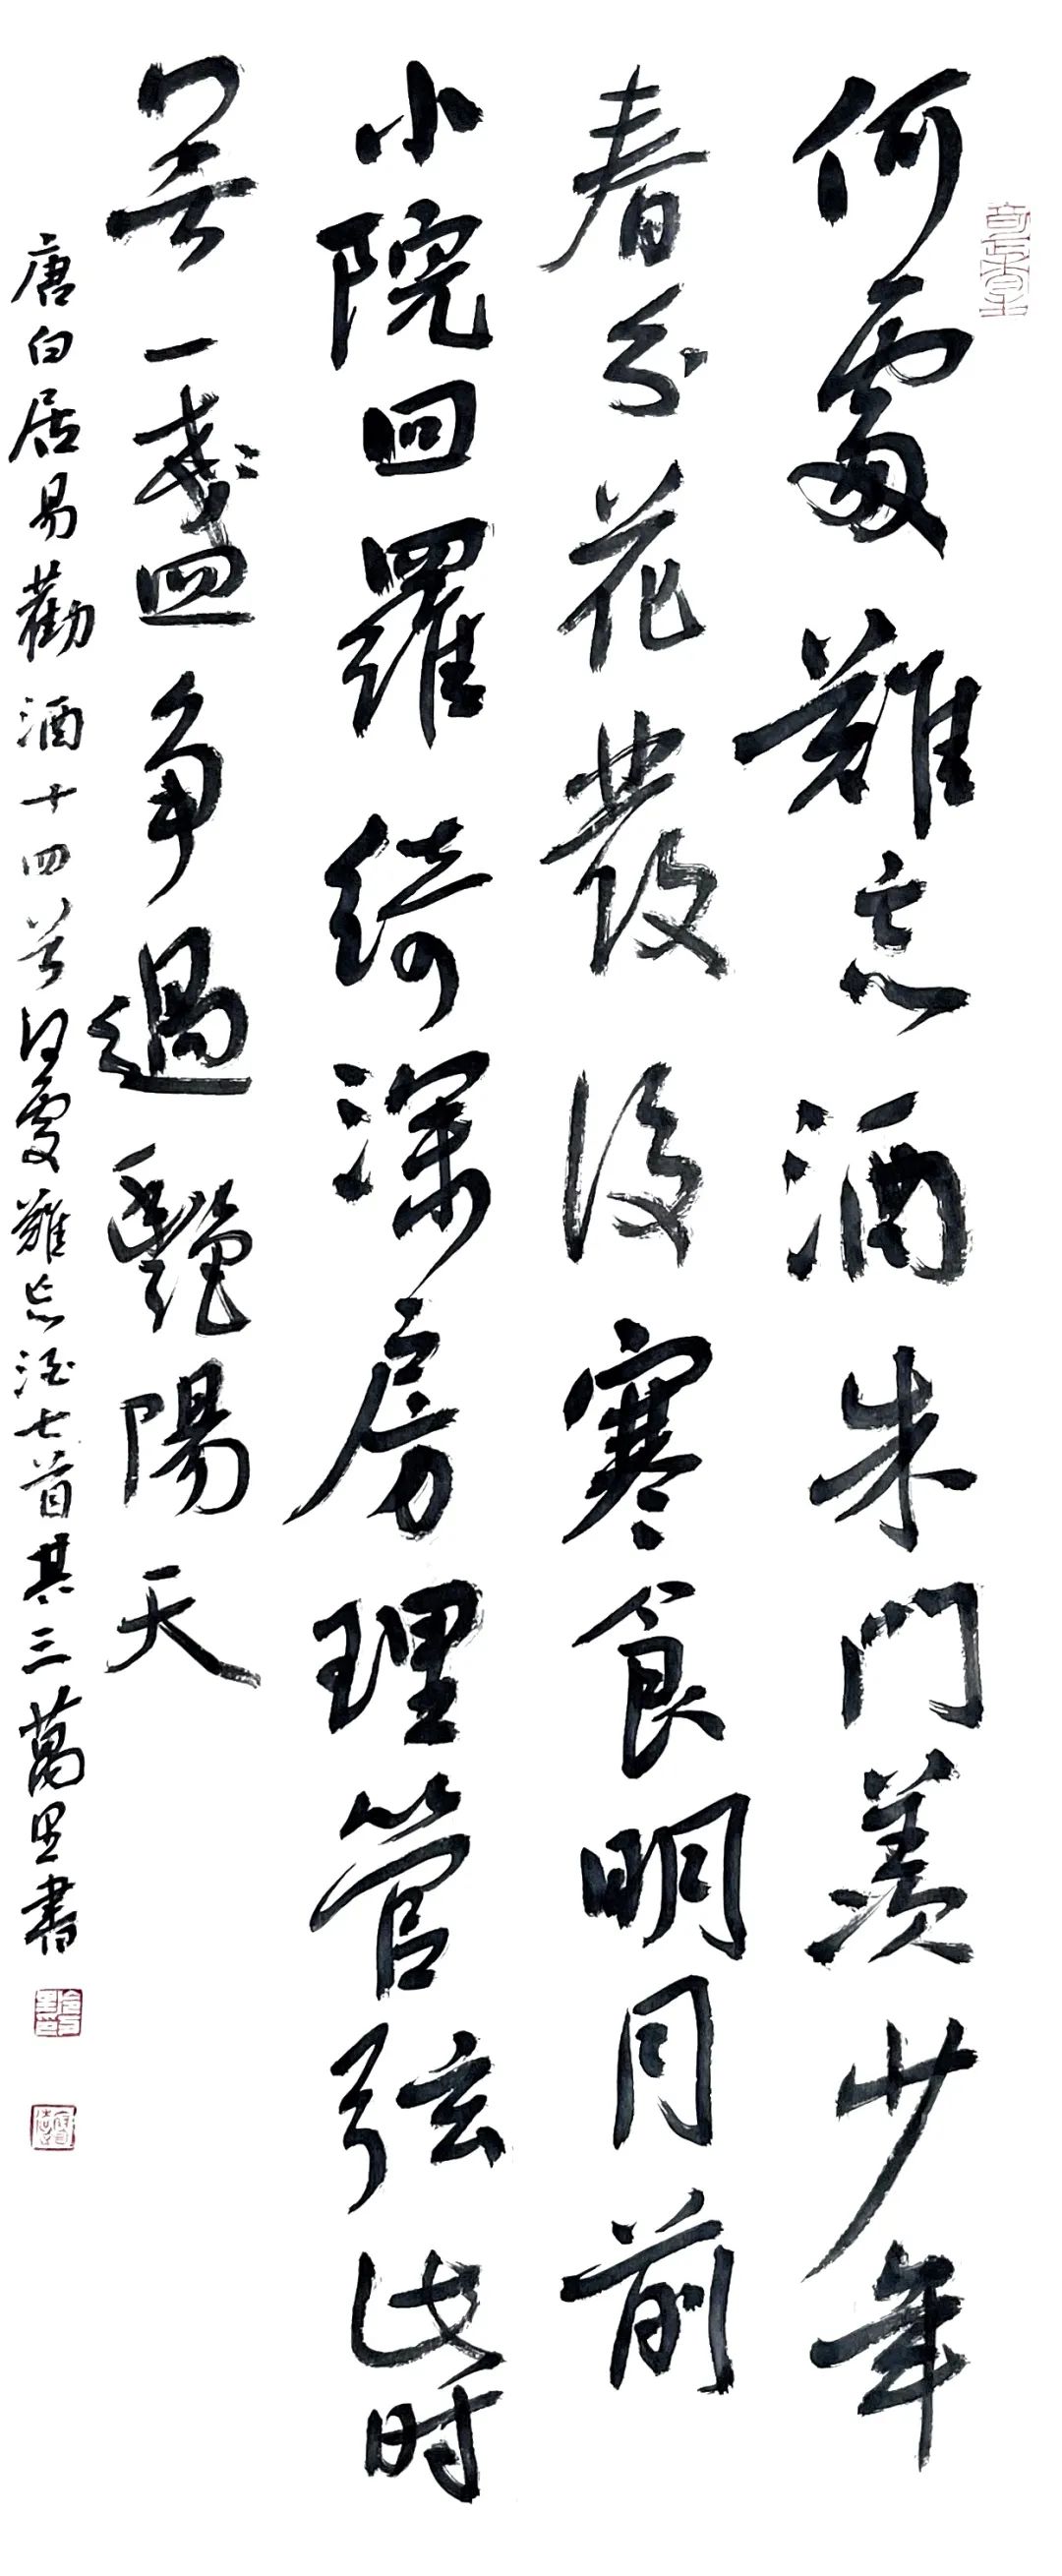 何處難忘酒朱門羨少年
春分花發後寒食明月前
小院回羅綺深房理管弦此时
若一盞争過豔陽天
唐白居易勸酒十四首何處難忘酒七首其三萬里書